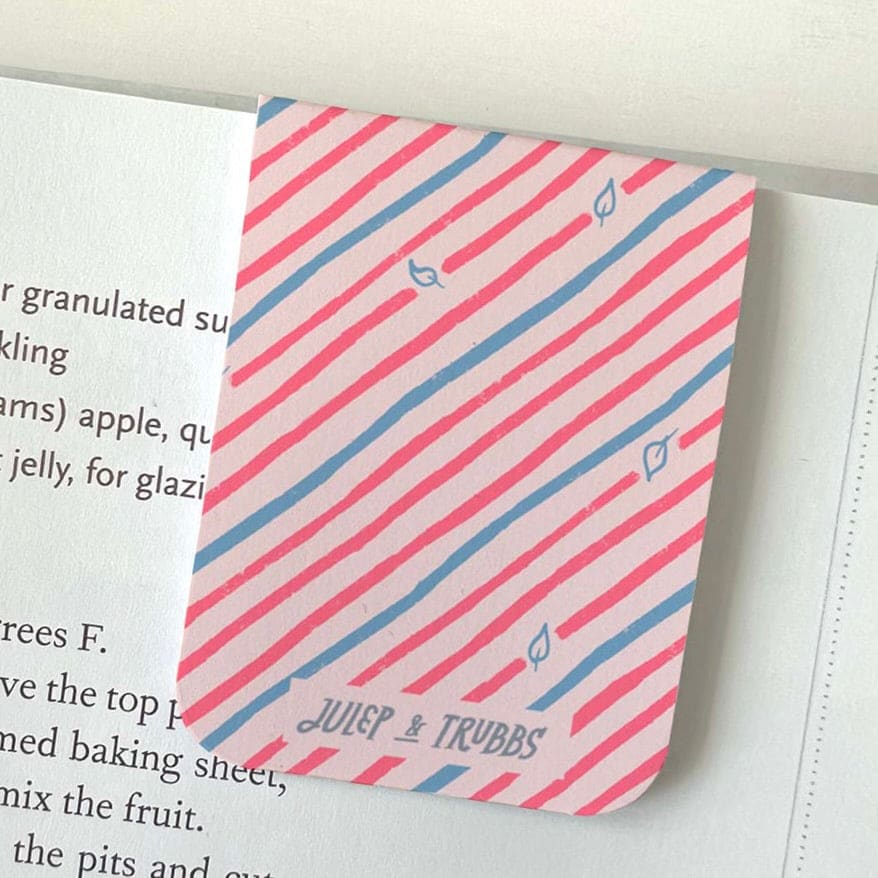 r granulated su
kling
ams) apple, qu
jelly, for glazi
rees F.
ve the top p
med baking sheet,
mix the fruit.
the pits and cut
JULEP & TRUBBS